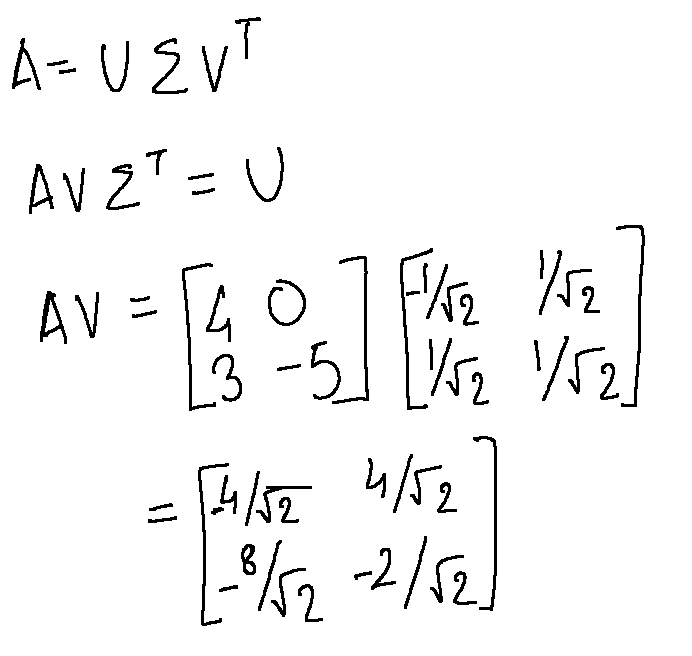 A = U Σ V^T
A V Σ^T = U
AV = [4 0; 3 -5] [-1/√2 1/√2; 1/√2 1/√2]
= [-4/√2 4/√2; -8/√2 -2/√2]